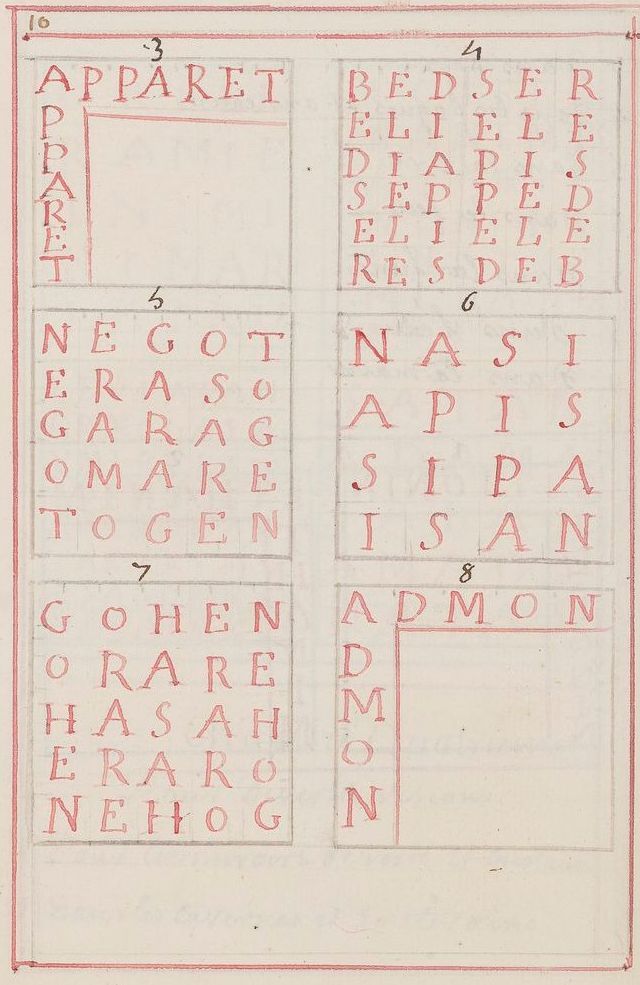 10
3
APPARET
P
P
A
R
E
T
4
BEDSER
ELIELE
DIAPIS
SEPPED
ELIELE
RESDEB
5
NEGOT
ERASO
GARAG
OMARE
TOGEN
6
NASI
APIS
SIPA
ISAN
7
GOHEN
ORARE
HASAH
ERARO
NEHOG
8
ADMON
D
M
O
N